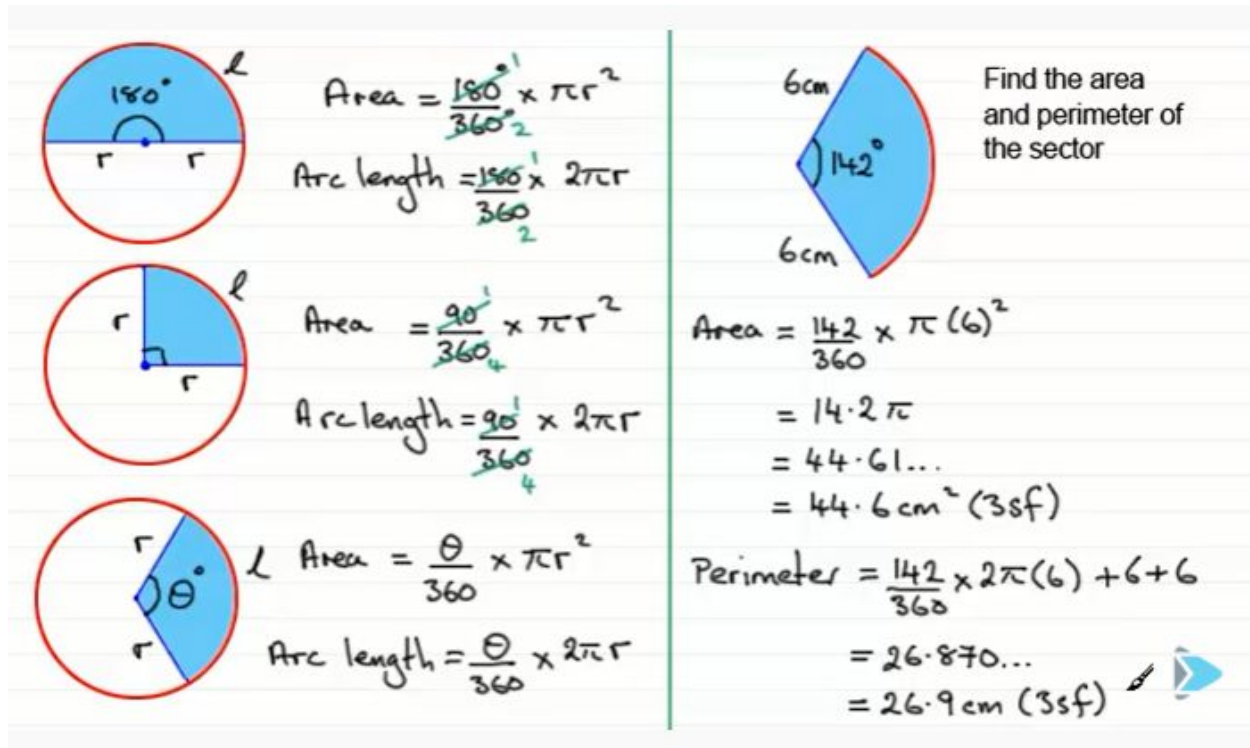 180°
l
r
r
Area = 180°/360° × πr²
1
2
Arc length = 180/360 × 2πr
1
2
l
r
r
Area = 90/360 × πr²
1
4
Arc length = 90/360 × 2πr
1
4
r
θ°
l
r
Area = θ/360 × πr²
Arc length = θ/360 × 2πr
6cm
142°
6cm
Find the area
and perimeter of
the sector
Area = 142/360 × π(6)²
= 14.2π
= 44.61...
= 44.6cm² (3sf)
Perimeter = 142/360 × 2π(6) + 6 + 6
= 26.870...
= 26.9cm (3sf)